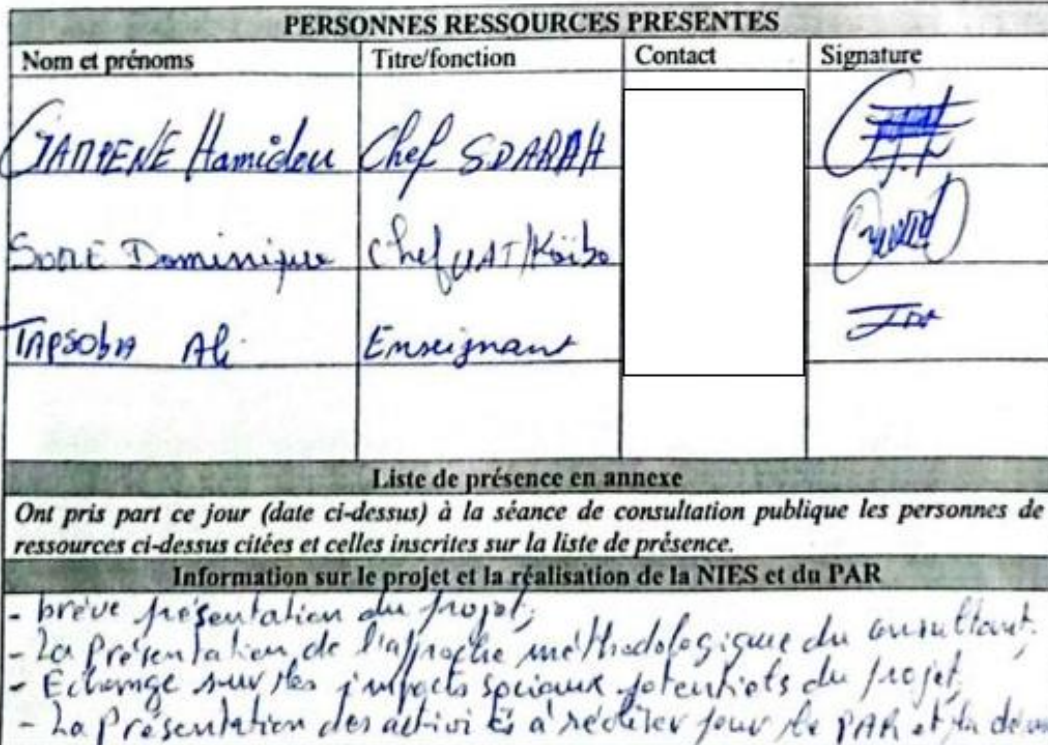 PERSONNES RESSOURCES PRESENTES
Nom et prénoms Titre/fonction Contact Signature
GAMPENE Hamidou Chef SDARAH
SORE Dominique Chef UAT/Koïbo
TAPSOBA Ali Enseignant
Liste de présence en annexe
Ont pris part ce jour (date ci-dessus) à la séance de consultation publique les personnes de
ressources ci-dessus citées et celles inscrites sur la liste de présence.
Information sur le projet et la réalisation de la NIES et du PAR
- brève présentation du projet;
- La Présentation de l'approche méthodologique du consultant;
- Echange sur les impacts sociaux potentiels du projet,
- La Présentation des activités à réaliser pour le PAR et la